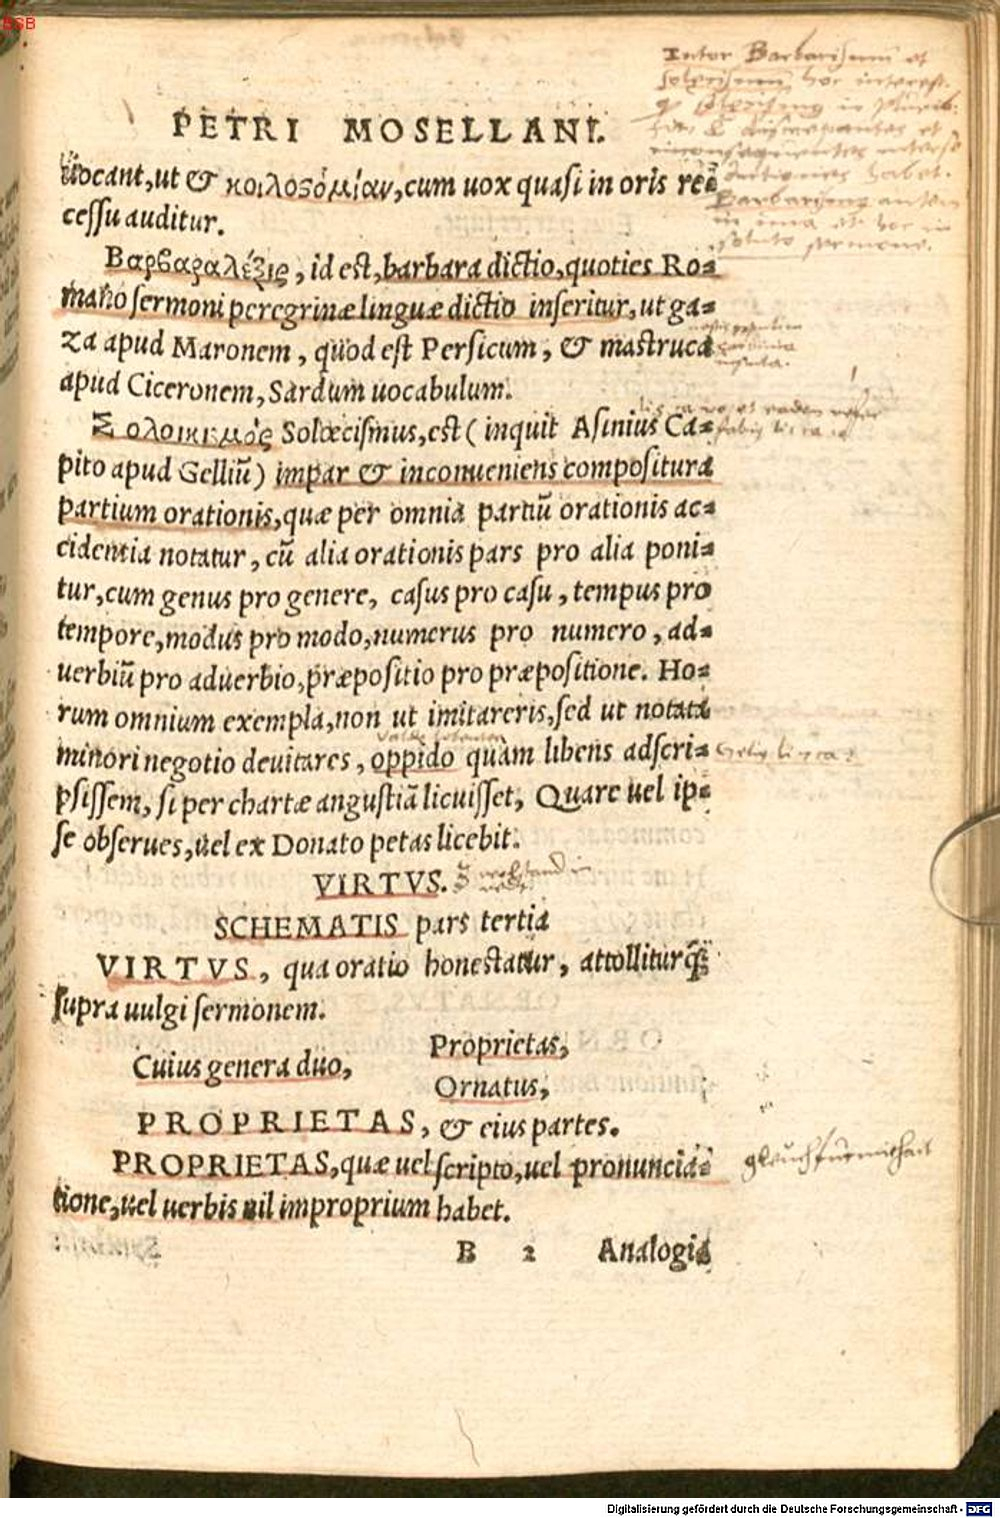 BSB
PETRI MOSELLANI.
uocant, ut & κοιλοςόμίαν, cum uox quasi in oris re⸗
cessu auditur.
Βαρβαραλέξις, id est, barbara dictio, quoties Ro⸗
mano sermoni peregrinæ linguæ dictio inseritur, ut ga⸗
za apud Maronem, quod est Persicum, & mastruca
apud Ciceronem, Sardum uocabulum.
Σολοικισμός Solœcismus, est (inquit Asinius Ca⸗
pito apud Gelliū) impar & inconueniens compositura
partium orationis, quæ per omnia partiū orationis ac⸗
cidentia notatur, cū alia orationis pars pro alia poni⸗
tur, cum genus pro genere, casus pro casu, tempus pro
tempore, modus pro modo, numerus pro numero, ad⸗
uerbiū pro aduerbio, præpositio pro præpositione. Ho⸗
rum omnium exempla, non ut imitareris, sed ut notata
minori negotio deuitares, oppido quàm libens adscri⸗
psissem, si per chartæ angustiā licuisset, Quare uel ip⸗
se obserues, uel ex Donato petas licebit.
VIRTVS.
SCHEMATIS pars tertia
VIRTVS, qua oratio honestatur, attolliturq́;
supra uulgi sermonem.
Cuius genera duo,
Proprietas,
Ornatus,
PROPRIETAS, & eius partes.
PROPRIETAS, quæ uel scripto, uel pronuncia⸗
tione, uel uerbis nil improprium habet.
B 2 Analogia
Inter Barbarismum et
solecismum hoc interest.
in
discrepantes et
inconsequentes interse
dictiones habet.
Barbarismus autem
in una et hoc in
soluto sermone.
Digitalisierung gefördert durch die Deutsche Forschungsgemeinschaft - DFG